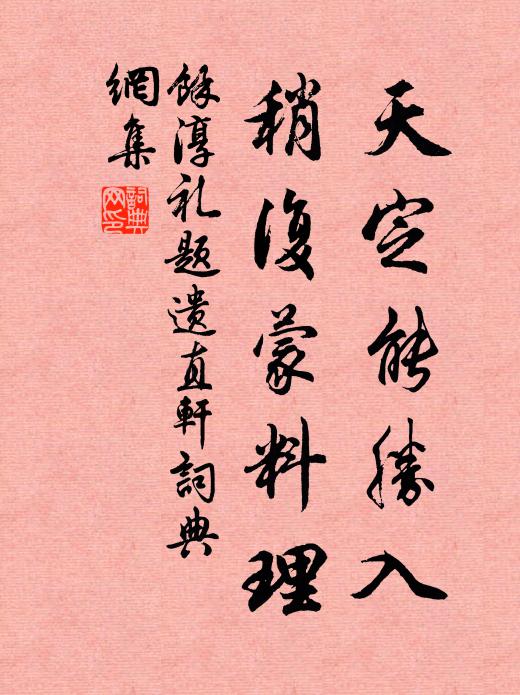 天定能勝入
稍復蒙料理
餘淳礼題遺直軒詞典
網集
詞典
网印